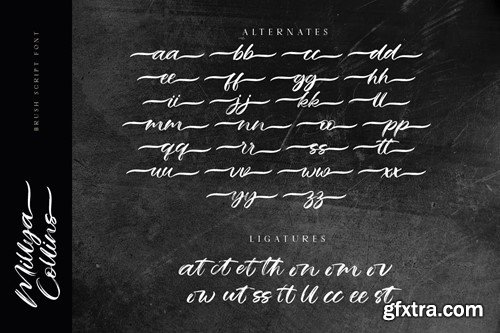 BRUSH SCRIPT FONT
Millya
Collins
ALTERNATES
aa bb cc dd
ee ff gg hh
ii jj kk ll
mm nn oo pp
qq rr ss tt
uu vv ww xx
yy zz
LIGATURES
at ct et th on om ov
ow ut ss tt ll cc ee st
gfxtra.com